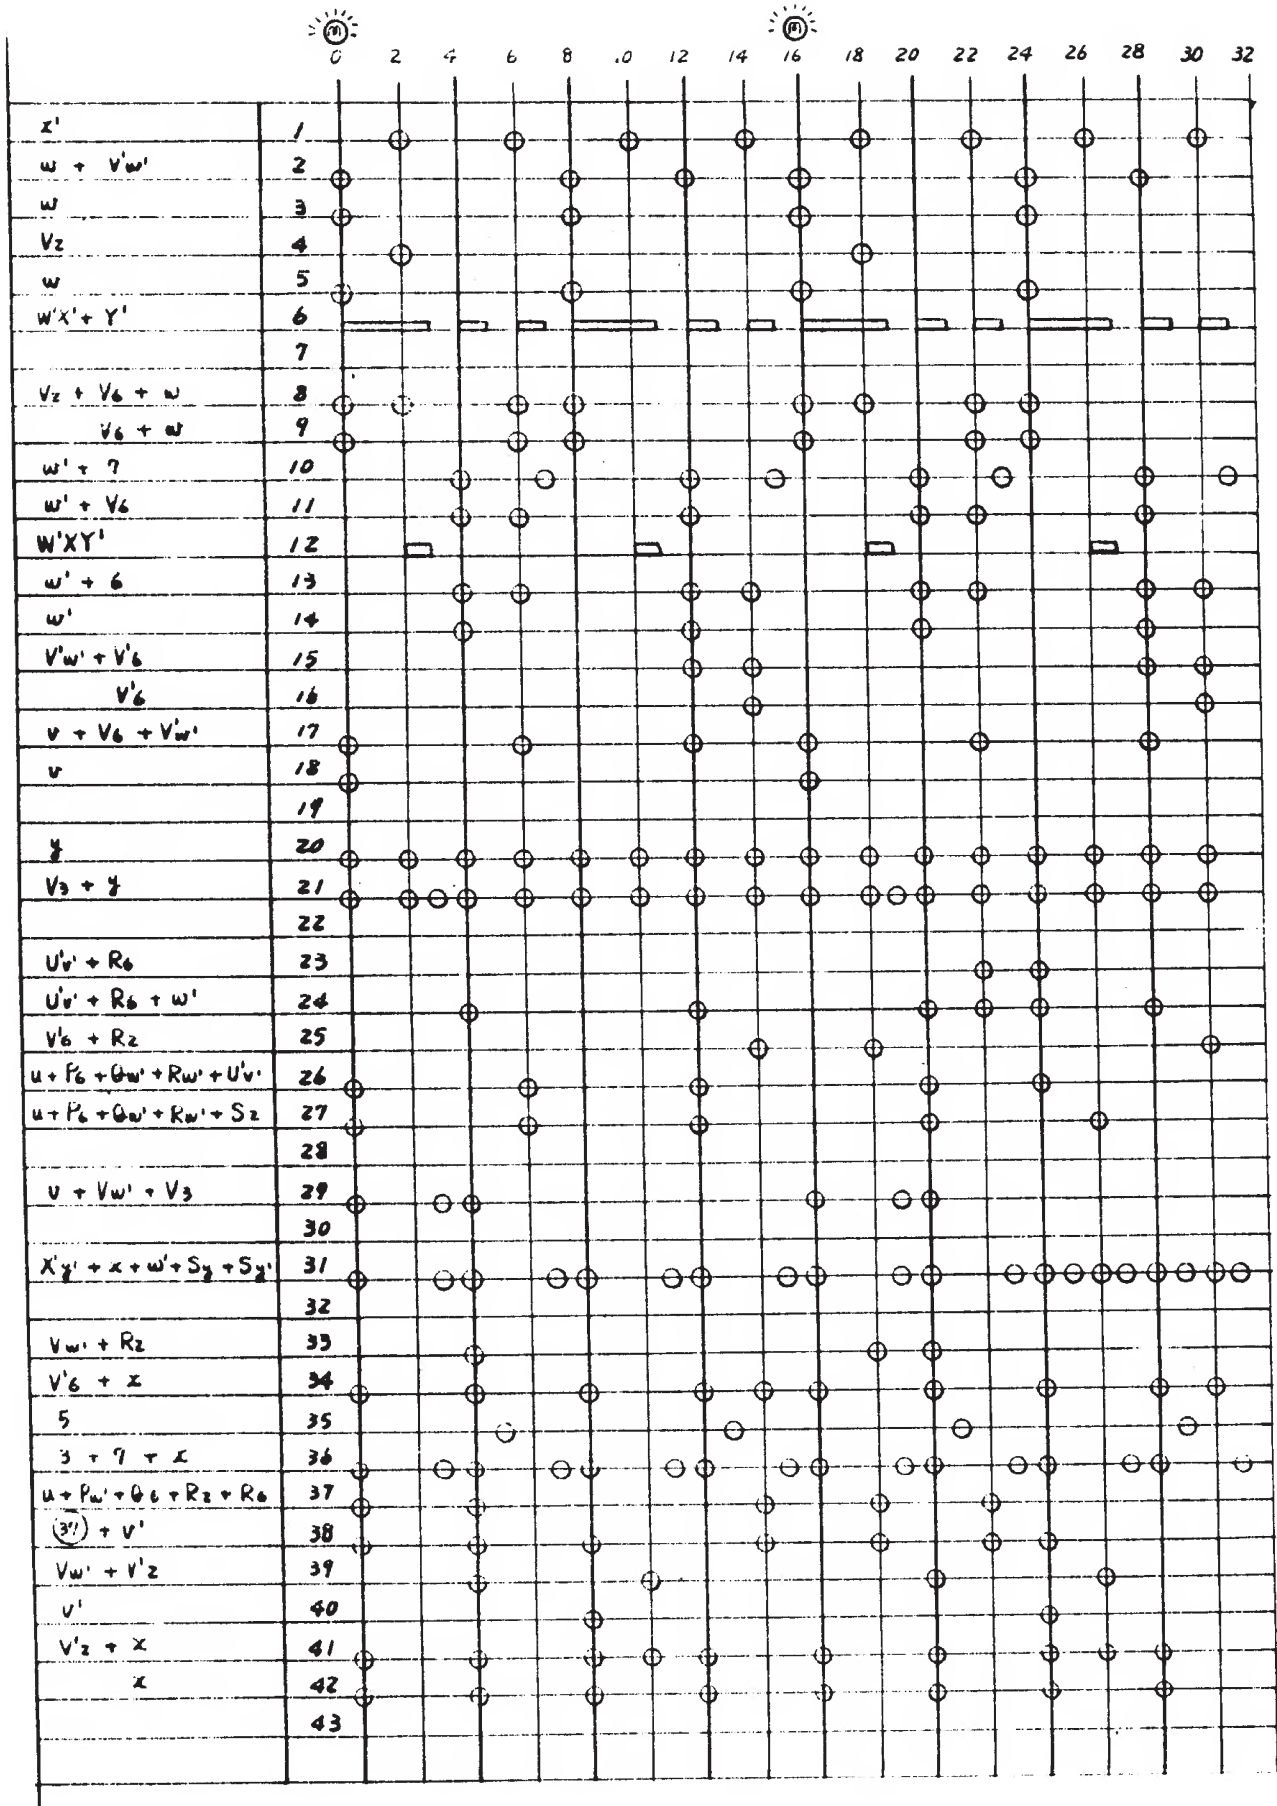 m m
0 2 4 6 8 10 12 14 16 18 20 22 24 26 28 30 32
x' 1
w + V'w' 2
w 3
V2 4
w 5
W'X' + Y' 6
7
V2 + V6 + w 8
V6 + w 9
w' + 7 10
w' + V6 11
W'XY' 12
w' + 6 13
w' 14
V'w' + V'6 15
V'6 16
v + V6 + V'w' 17
v 18
19
y 20
V3 + y 21
22
U'v' + R6 23
U'v' + R6 + w' 24
V'6 + R2 25
u + P6 + Qw' + Rw' + U'v' 26
u + P6 + Qw' + Rw' + S2 27
28
v + Vw' + V3 29
30
X'y' + x + w' + Sy + Sy' 31
32
Vw' + R2 33
V'6 + x 34
5 35
3 + 7 + x 36
u + Pw' + Q6 + R2 + R6 37
(37) + v' 38
Vw' + V'2 39
v' 40
V'2 + x 41
x 42
43